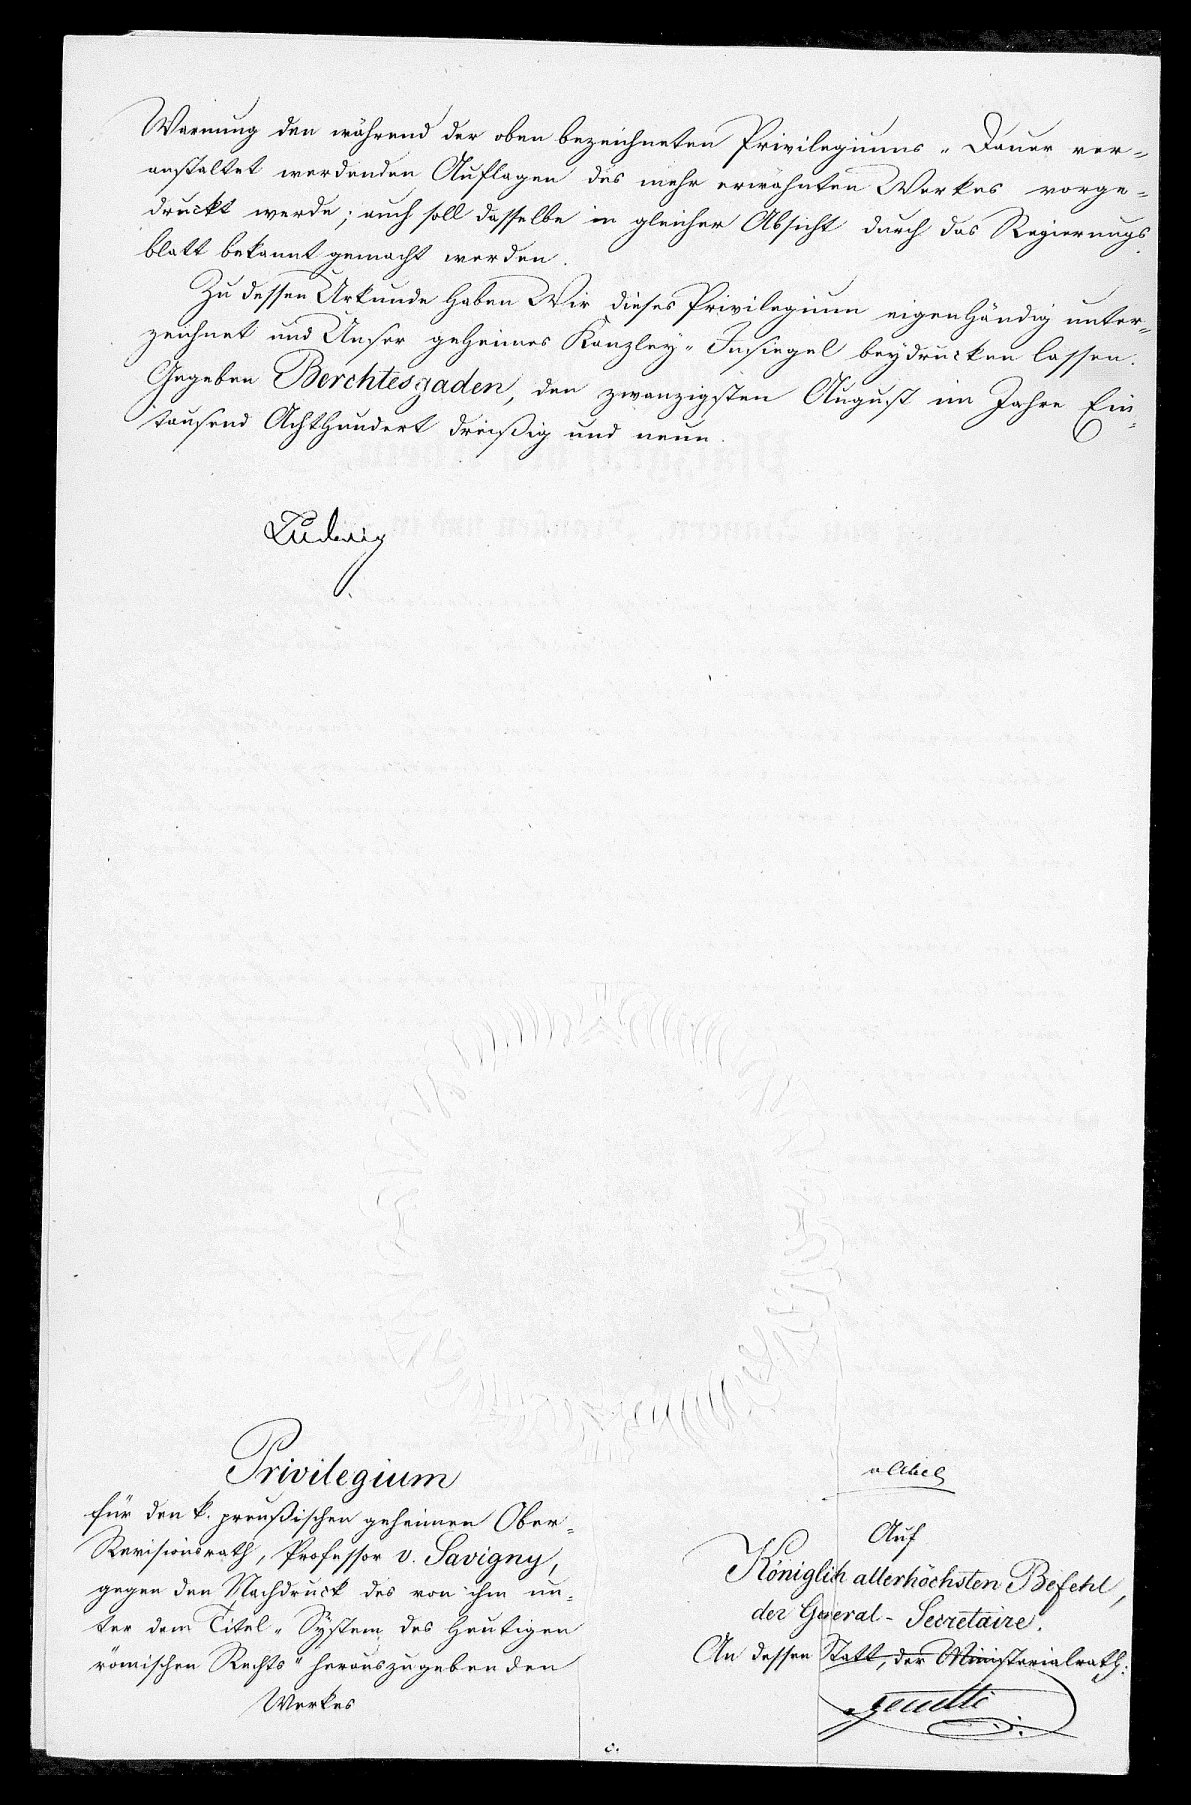 Warnung den während der oben bezeichneten Privilegiums-Dauer ver-
anstaltet werdenden Auflagen des mehr erwähnten Werkes vorge-
druckt werde; auch soll dasselbe in gleicher Absicht durch das Regierungs
blatt bekannt gemacht werden.
Zu dessen Urkunde haben Wir dieses Privilegium eigenhändig unter-
zeichnet und Unser geheimes Kanzley-Insiegel beydrucken lassen.
Gegeben Berchtesgaden, den zwanzigsten August im Jahre Ein-
tausend Achthundert dreißig und neun.
Ludwig
Privilegium
für den k. preußischen geheimen Ober-
Revisionsrath, Professor v. Savigny,
gegen den Nachdruck des von ihm un-
ter dem Titel "System des heutigen
römischen Rechts" herauszugebenden
Werkes
v Abel
Auf
Königlich allerhöchsten Befehl,
der General-Secretaire.
An dessen Statt, der Ministerialrath:
c.